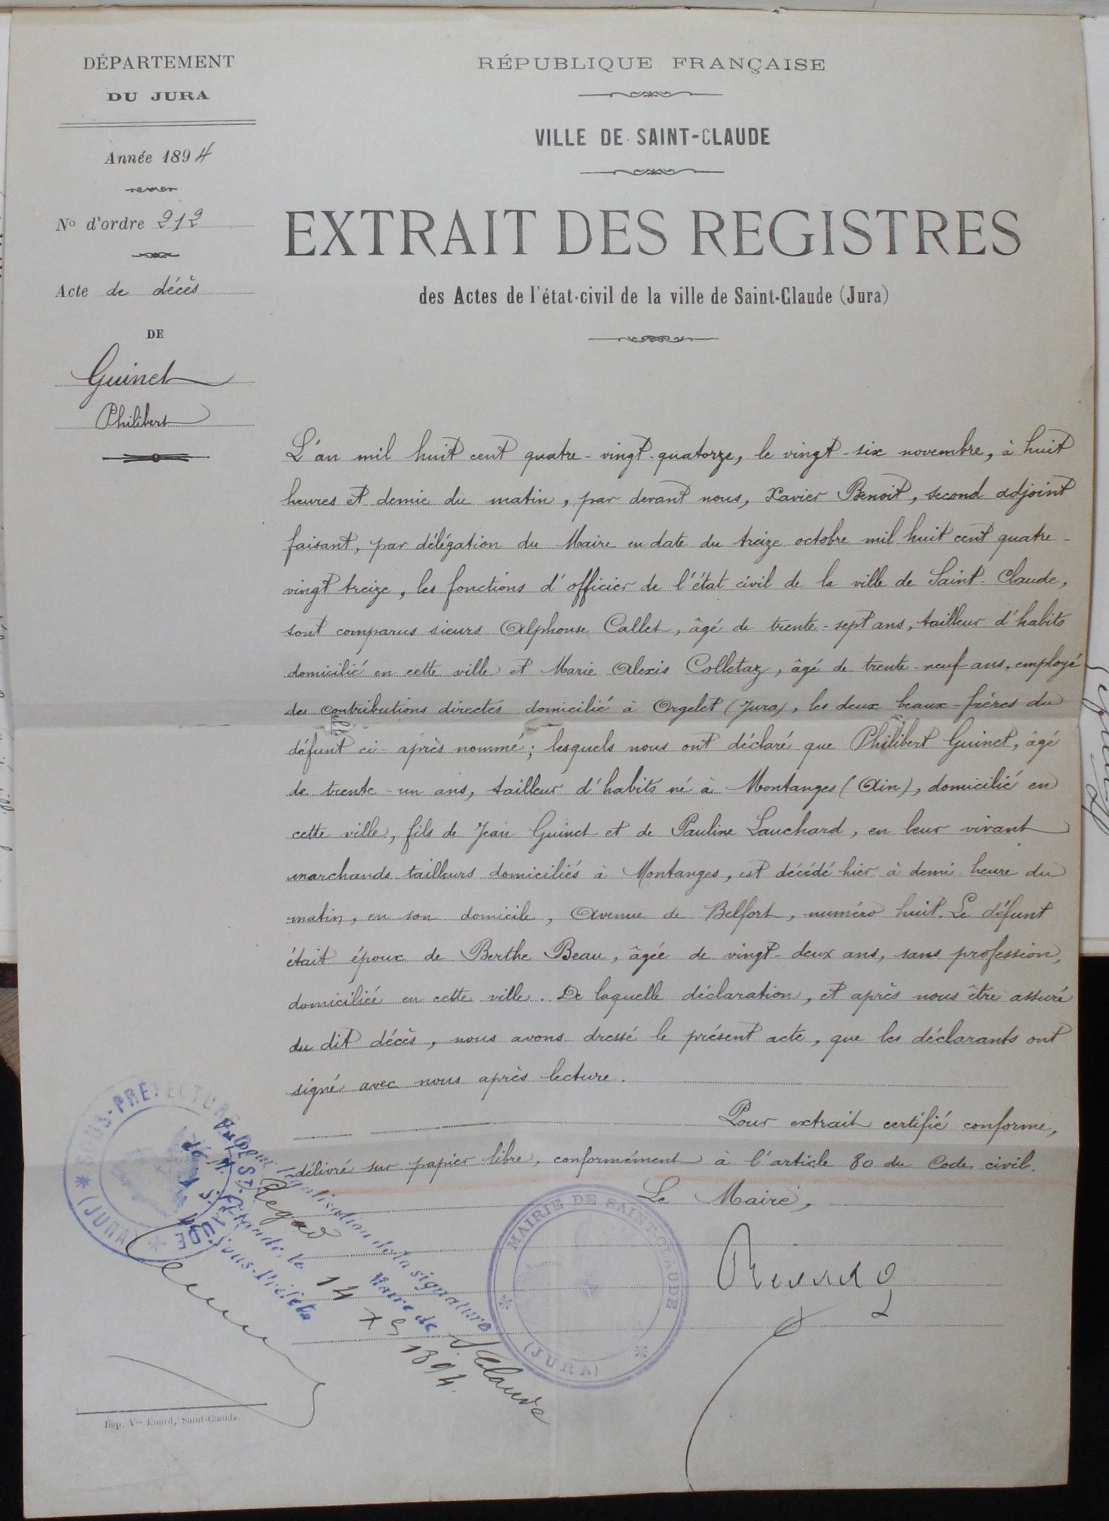 DÉPARTEMENT
DU JURA
Année 1894
No d'ordre 212
Acte de décès
DE
Guinet
Philibert
RÉPUBLIQUE FRANÇAISE
VILLE DE SAINT-CLAUDE
EXTRAIT DES REGISTRES
des Actes de l'état-civil de la ville de Saint-Claude (Jura)
L'an mil huit cent quatre-vingt-quatorze, le vingt-six novembre, à huit
heures et demie du matin, par devant nous, Xavier Benoit, second adjoint
faisant, par délégation du Maire en date du treize octobre mil huit cent quatre-
vingt treize, les fonctions d'officier de l'état civil de la ville de Saint-Claude,
sont comparus sieurs Alphonse Callet, âgé de trente-sept ans, tailleur d'habits
domicilié en cette ville et Marie Alexis Colletaz, âgé de trente-neuf ans, employé
des contributions directes domicilié à Orgelet (Jura), les deux beaux-frères du
défunt ci-après nommé; lesquels nous ont déclaré que Philibert Guinet, âgé
de trente-un ans, tailleur d'habits né à Montanges (Ain), domicilié en
cette ville, fils de Jean Guinet et de Pauline Lauchard, en leur vivant
marchands tailleurs domiciliés à Montanges, est décédé hier à demi heure du
matin, en son domicile, Avenue de Belfort, numéro huit. Le défunt
était époux de Berthe Beau, âgée de vingt-deux ans, sans profession,
domiciliée en cette ville. De laquelle déclaration, et après nous être assuré
du dit décès, nous avons dressé le présent acte, que les déclarants ont
signé avec nous après lecture.
Pour extrait certifié conforme,
délivré sur papier libre, conformément à l'article 80 du Code civil.
Le Maire,
MAIRIE DE SAINT-CLAUDE
(JURA)
SOUS-PRÉFECTURE
DE ST-CLAUDE
(JURA)
légalisation de la signature
de M. Regad
Maire de St Claude
St-Claude, le 14 Xbre 1894.
Le Sous-Préfet
Imp. Ve Enard, Saint-Claude